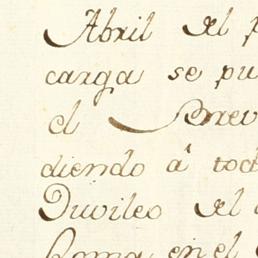 Abril del p
carga se pu
el Brev
diendo à tod
Juvileo del
Roma en el